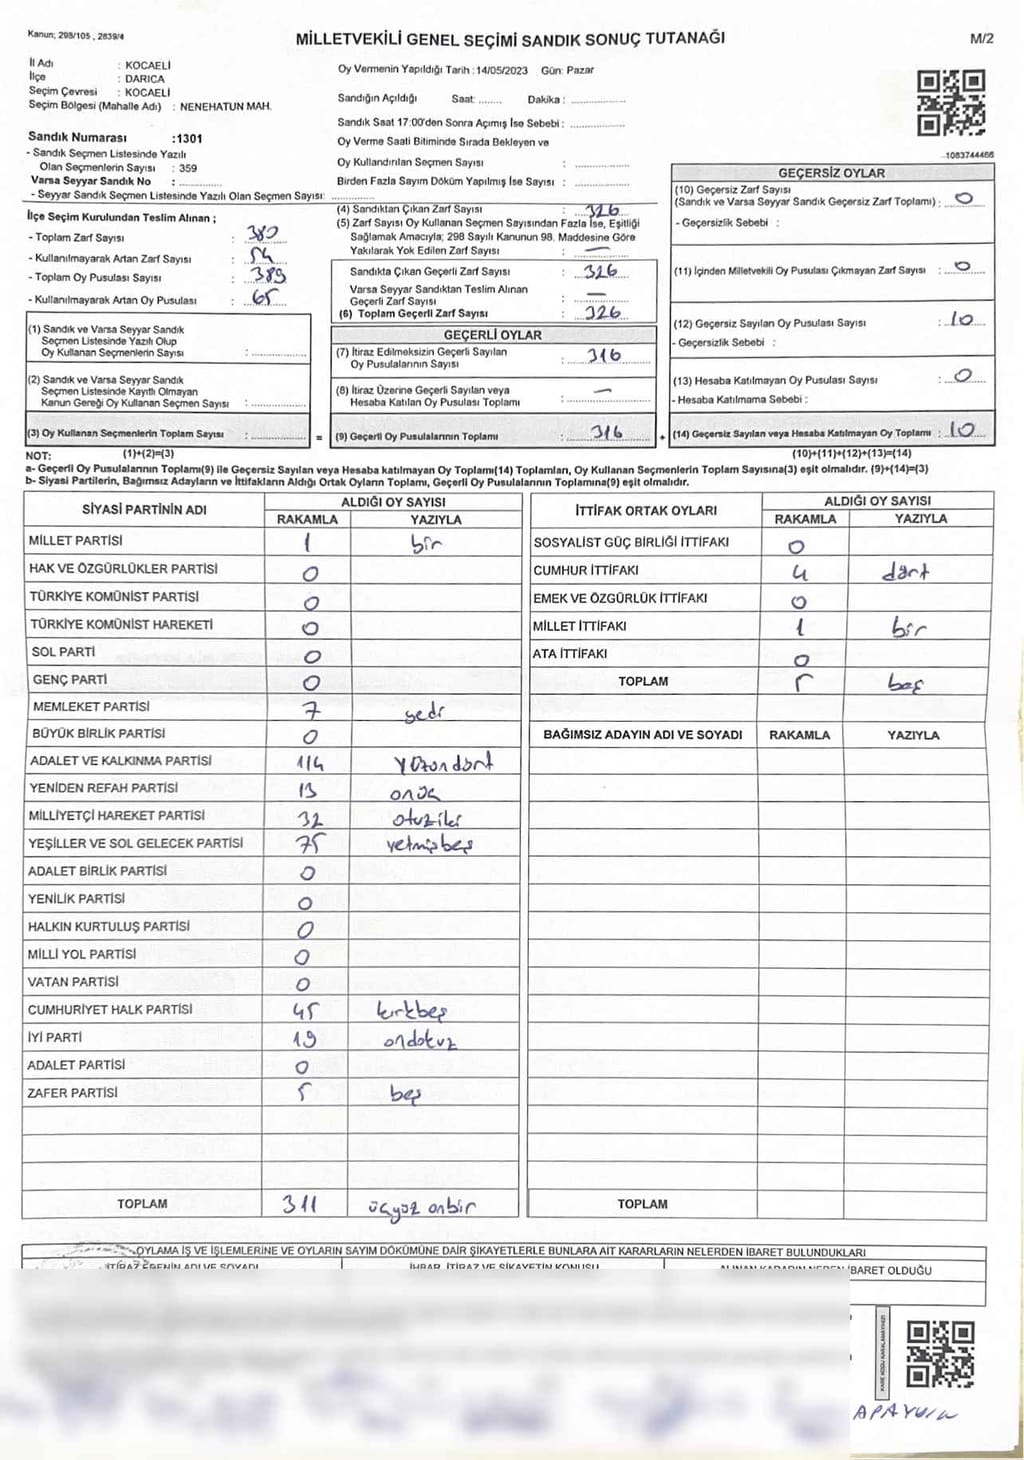 Kanun; 298/105 , 2839/4
MİLLETVEKİLİ GENEL SEÇİMİ SANDIK SONUÇ TUTANAĞI
M/2
İl Adı : KOCAELİ
İlçe : DARICA
Seçim Çevresi : KOCAELİ
Seçim Bölgesi (Mahalle Adı) : NENEHATUN MAH.
Sandık Numarası :1301
- Sandık Seçmen Listesinde Yazılı
Olan Seçmenlerin Sayısı : 359
Varsa Seyyar Sandık No : ............
- Seyyar Sandık Seçmen Listesinde Yazılı Olan Seçmen Sayısı: ............
Oy Vermenin Yapıldığı Tarih :14/05/2023 Gün: Pazar
Sandığın Açıldığı Saat: ........ Dakika : ...............
Sandık Saat 17:00'den Sonra Açımış İse Sebebi : ...............
Oy Verme Saati Bitiminde Sırada Bekleyen ve
Oy Kullandırılan Seçmen Sayısı : ...............
Birden Fazla Sayım Döküm Yapılmış İse Sayısı : ...............
1083744466
İlçe Seçim Kurulundan Teslim Alınan ;
- Toplam Zarf Sayısı : 380
- Kullanılmayarak Artan Zarf Sayısı : 54
- Toplam Oy Pusulası Sayısı : 389
- Kullanılmayarak Artan Oy Pusulası : 65
(1) Sandık ve Varsa Seyyar Sandık
Seçmen Listesinde Yazılı Olup
Oy Kullanan Seçmenlerin Sayısı : ............
(2) Sandık ve Varsa Seyyar Sandık
Seçmen Listesinde Kayıtlı Olmayan
Kanun Gereği Oy Kullanan Seçmen Sayısı : ............
(3) Oy Kullanan Seçmenlerin Toplam Sayısı : ............ =
(4) Sandıktan Çıkan Zarf Sayısı : 326
(5) Zarf Sayısı Oy Kullanan Seçmen Sayısından Fazla İse, Eşitliği
Sağlamak Amacıyla; 298 Sayılı Kanunun 98. Maddesine Göre
Yakılarak Yok Edilen Zarf Sayısı : —
Sandıkta Çıkan Geçerli Zarf Sayısı : 326
Varsa Seyyar Sandıktan Teslim Alınan
Geçerli Zarf Sayısı : —
(6) Toplam Geçerli Zarf Sayısı : 326
GEÇERLİ OYLAR
(7) İtiraz Edilmeksizin Geçerli Sayılan
Oy Pusulalarının Sayısı : 316
(8) İtiraz Üzerine Geçerli Sayılan veya
Hesaba Katılan Oy Pusulası Toplamı : —
(9) Geçerli Oy Pusulalarının Toplamı : 316 +
GEÇERSİZ OYLAR
(10) Geçersiz Zarf Sayısı
(Sandık ve Varsa Seyyar Sandık Geçersiz Zarf Toplamı) : 0
- Geçersizlik Sebebi :
(11) İçinden Milletvekili Oy Pusulası Çıkmayan Zarf Sayısı : 0
(12) Geçersiz Sayılan Oy Pusulası Sayısı : 10
- Geçersizlik Sebebi :
(13) Hesaba Katılmayan Oy Pusulası Sayısı : 0
- Hesaba Katılmama Sebebi :
(14) Geçersiz Sayılan veya Hesaba Katılmayan Oy Toplamı : 10
NOT: (1)+(2)=(3) (10)+(11)+(12)+(13)=(14)
a- Geçerli Oy Pusulalarının Toplamı(9) ile Geçersiz Sayılan veya Hesaba katılmayan Oy Toplamı(14) Toplamları, Oy Kullanan Seçmenlerin Toplam Sayısına(3) eşit olmalıdır. (9)+(14)=(3)
b- Siyasi Partilerin, Bağımsız Adayların ve İttifakların Aldığı Ortak Oyların Toplamı, Geçerli Oy Pusulalarının Toplamına(9) eşit olmalıdır.
SİYASİ PARTİNİN ADI ALDIĞI OY SAYISI
RAKAMLA YAZIYLA
MİLLET PARTİSİ 1 bir
HAK VE ÖZGÜRLÜKLER PARTİSİ 0
TÜRKİYE KOMÜNİST PARTİSİ 0
TÜRKİYE KOMÜNİST HAREKETİ 0
SOL PARTİ 0
GENÇ PARTİ 0
MEMLEKET PARTİSİ 7 yedi
BÜYÜK BİRLİK PARTİSİ 0
ADALET VE KALKINMA PARTİSİ 114 Yüzondört
YENİDEN REFAH PARTİSİ 13 onüç
MİLLİYETÇİ HAREKET PARTİSİ 32 otuziki
YEŞİLLER VE SOL GELECEK PARTİSİ 75 yetmişbeş
ADALET BİRLİK PARTİSİ 0
YENİLİK PARTİSİ 0
HALKIN KURTULUŞ PARTİSİ 0
MİLLİ YOL PARTİSİ 0
VATAN PARTİSİ 0
CUMHURİYET HALK PARTİSİ 45 kırkbeş
İYİ PARTİ 19 ondokuz
ADALET PARTİSİ 0
ZAFER PARTİSİ 5 beş
TOPLAM 311 üçyüz onbir
İTTİFAK ORTAK OYLARI ALDIĞI OY SAYISI
RAKAMLA YAZIYLA
SOSYALİST GÜÇ BİRLİĞİ İTTİFAKI 0
CUMHUR İTTİFAKI 4 dört
EMEK VE ÖZGÜRLÜK İTTİFAKI 0
MİLLET İTTİFAKI 1 bir
ATA İTTİFAKI 0
TOPLAM 5 beş
BAĞIMSIZ ADAYIN ADI VE SOYADI RAKAMLA YAZIYLA
TOPLAM
OYLAMA İŞ VE İŞLEMLERİNE VE OYLARIN SAYIM DÖKÜMÜNE DAİR ŞİKAYETLERLE BUNLARA AİT KARARLARIN NELERDEN İBARET BULUNDUKLARI
İTİRAZ EDENİN ADI VE SOYADI İHBAR, İTİRAZ VE ŞİKAYETİN KONUSU ALINAN KARARIN NEDEN İBARET OLDUĞU
KARE KODU KARALAMAYINIZ!
APAYDIN